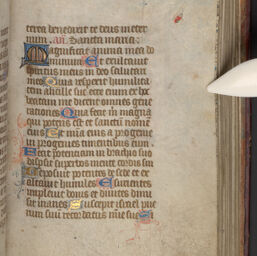 terea benedixit te deus in eter
num. an. Sancta maria.
Magnificat anima mea do
minum Et exultauit
spiritus meus in deo salutari
meo Quia respexit humilita
tem ancille sue ecce enim ex hoc
beatam me dicent omnes gene
rationes Quia fecit m magna
qui potens est et sanctu nome
eius Et mia eius a progenie
in progenies timentibus eum.
Fecit potentiam in brachio suo
dispsit supbos mente cordis sui
Deposuit potentes de sede et ex
altauit humiles Esurientes
impleuit bonis et diuites dimi
sit inanes Suscepit israel pue
rum suu recordatus mie sue Si